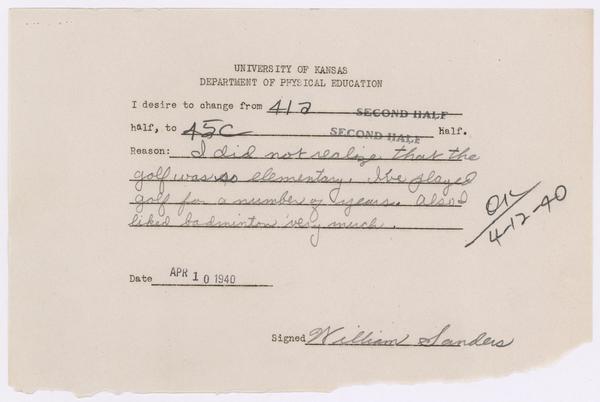 UNIVERSITY OF KANSAS
DEPARTMENT OF PHYSICAL EDUCATION
I desire to change from 41a SECOND HALF
half, to 45C SECOND HALF Half.
Reason: I did not realize that the
golf was so elementary. I've played
golf for a number of years. Also I
liked badminton very much.
OK
4-12-40
Date APR 10 1940
Signed William Sanders